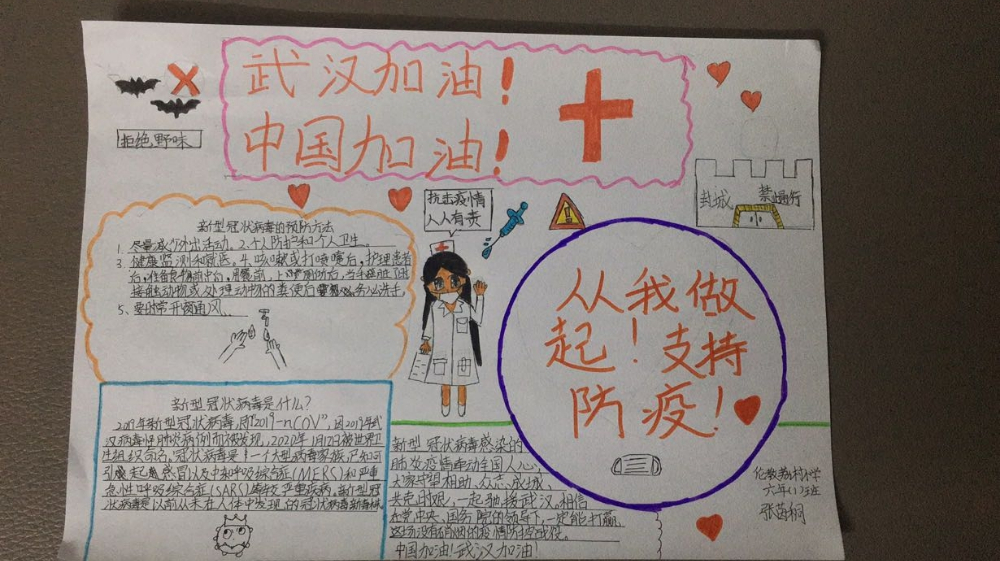 武汉加油!
中国加油!
拒绝野味
抗击疫情
人人有责
封城
禁止通行
新型冠状病毒的预防方法
1. 尽量减少外出活动。2. 个人防护和个人卫生。
3. 健康监测和就医。4. 咳嗽或打喷嚏后,护理患者
后,准备食物前中后,餐前,上厕所后,手脏时
接触动物或处理动物的粪便后 务必洗手。
5、要时常开窗通风。
从我做
起!支持
防疫!
新型冠状病毒是什么?
2019年新型冠状病毒,即"2019-nCOV",因2019年武
汉病毒性肺炎病例而被发现,2020年1月12日被世界卫
生组织命名,冠状病毒是一个大型病毒家族,已知可
引起感冒以及中东呼吸综合症(MERS)和严重
急性呼吸综合症(SARS)等较严重疾病,新型冠
状病毒是以前从未在人体中发现的冠状病毒新毒株
新型冠状病毒感染的
肺炎疫情牵动全国人心,
大家守望相助,众志成城,
共克时艰,一起驰援武汉。相信
在党中央、国务院的领导下,一定能打赢
这场没有硝烟的疫情防控战役。
中国加油!武汉加油!
伦教荔村小学
六年(1)班
张茵桐